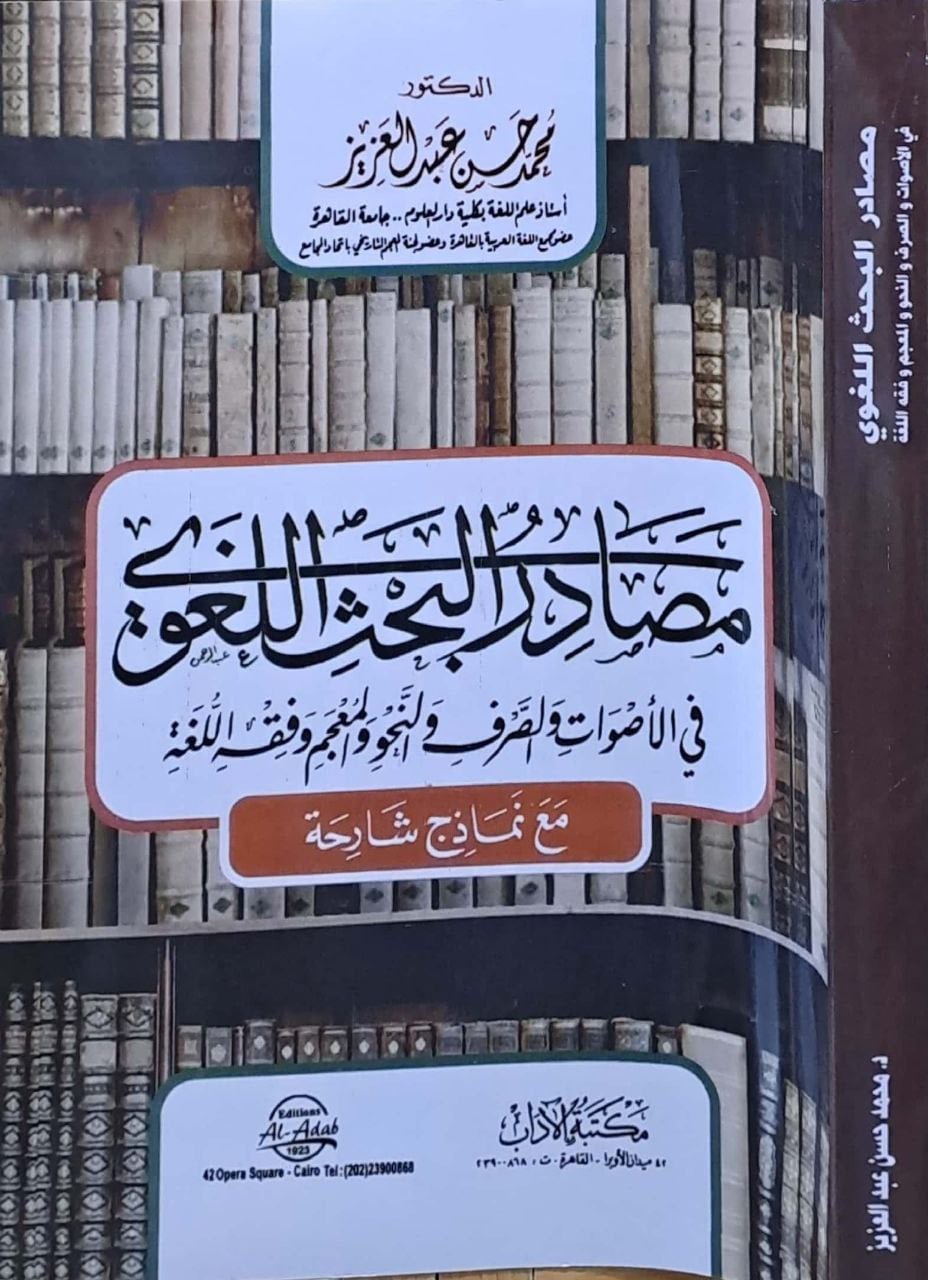 الدكتور
محمد حسن عبد العزيز
أستاذ علم اللغة بكلية دار العلوم .. جامعة القاهرة
عضو مجمع اللغة العربية بالقاهرة وعضو لجنة المعجم التاريخي باتحاد المجامع
مَصَادِرُ البَحْثِ اللغَوي
في الأصْوَاتِ وَالصَّرْفِ وَالنَّحْوِ وَالمُعْجَمِ وَفِقْهِ اللُّغَةِ
مَعَ نَمَاذِج شَارِحَة
مَكتَبَة الآدَاب
٤٢ ميدان الأوبرا - القاهرة - ت : ٢٣٩٠٠٨٦٨
Editions
Al-Adab
1923
42 Opera Square - Cairo Tel : (202)23900868
مصادر البحث اللغوي
في الأصوات و الصرف و النحو و المعجم و فقه اللغة
د. محمد حسن عبد العزيز